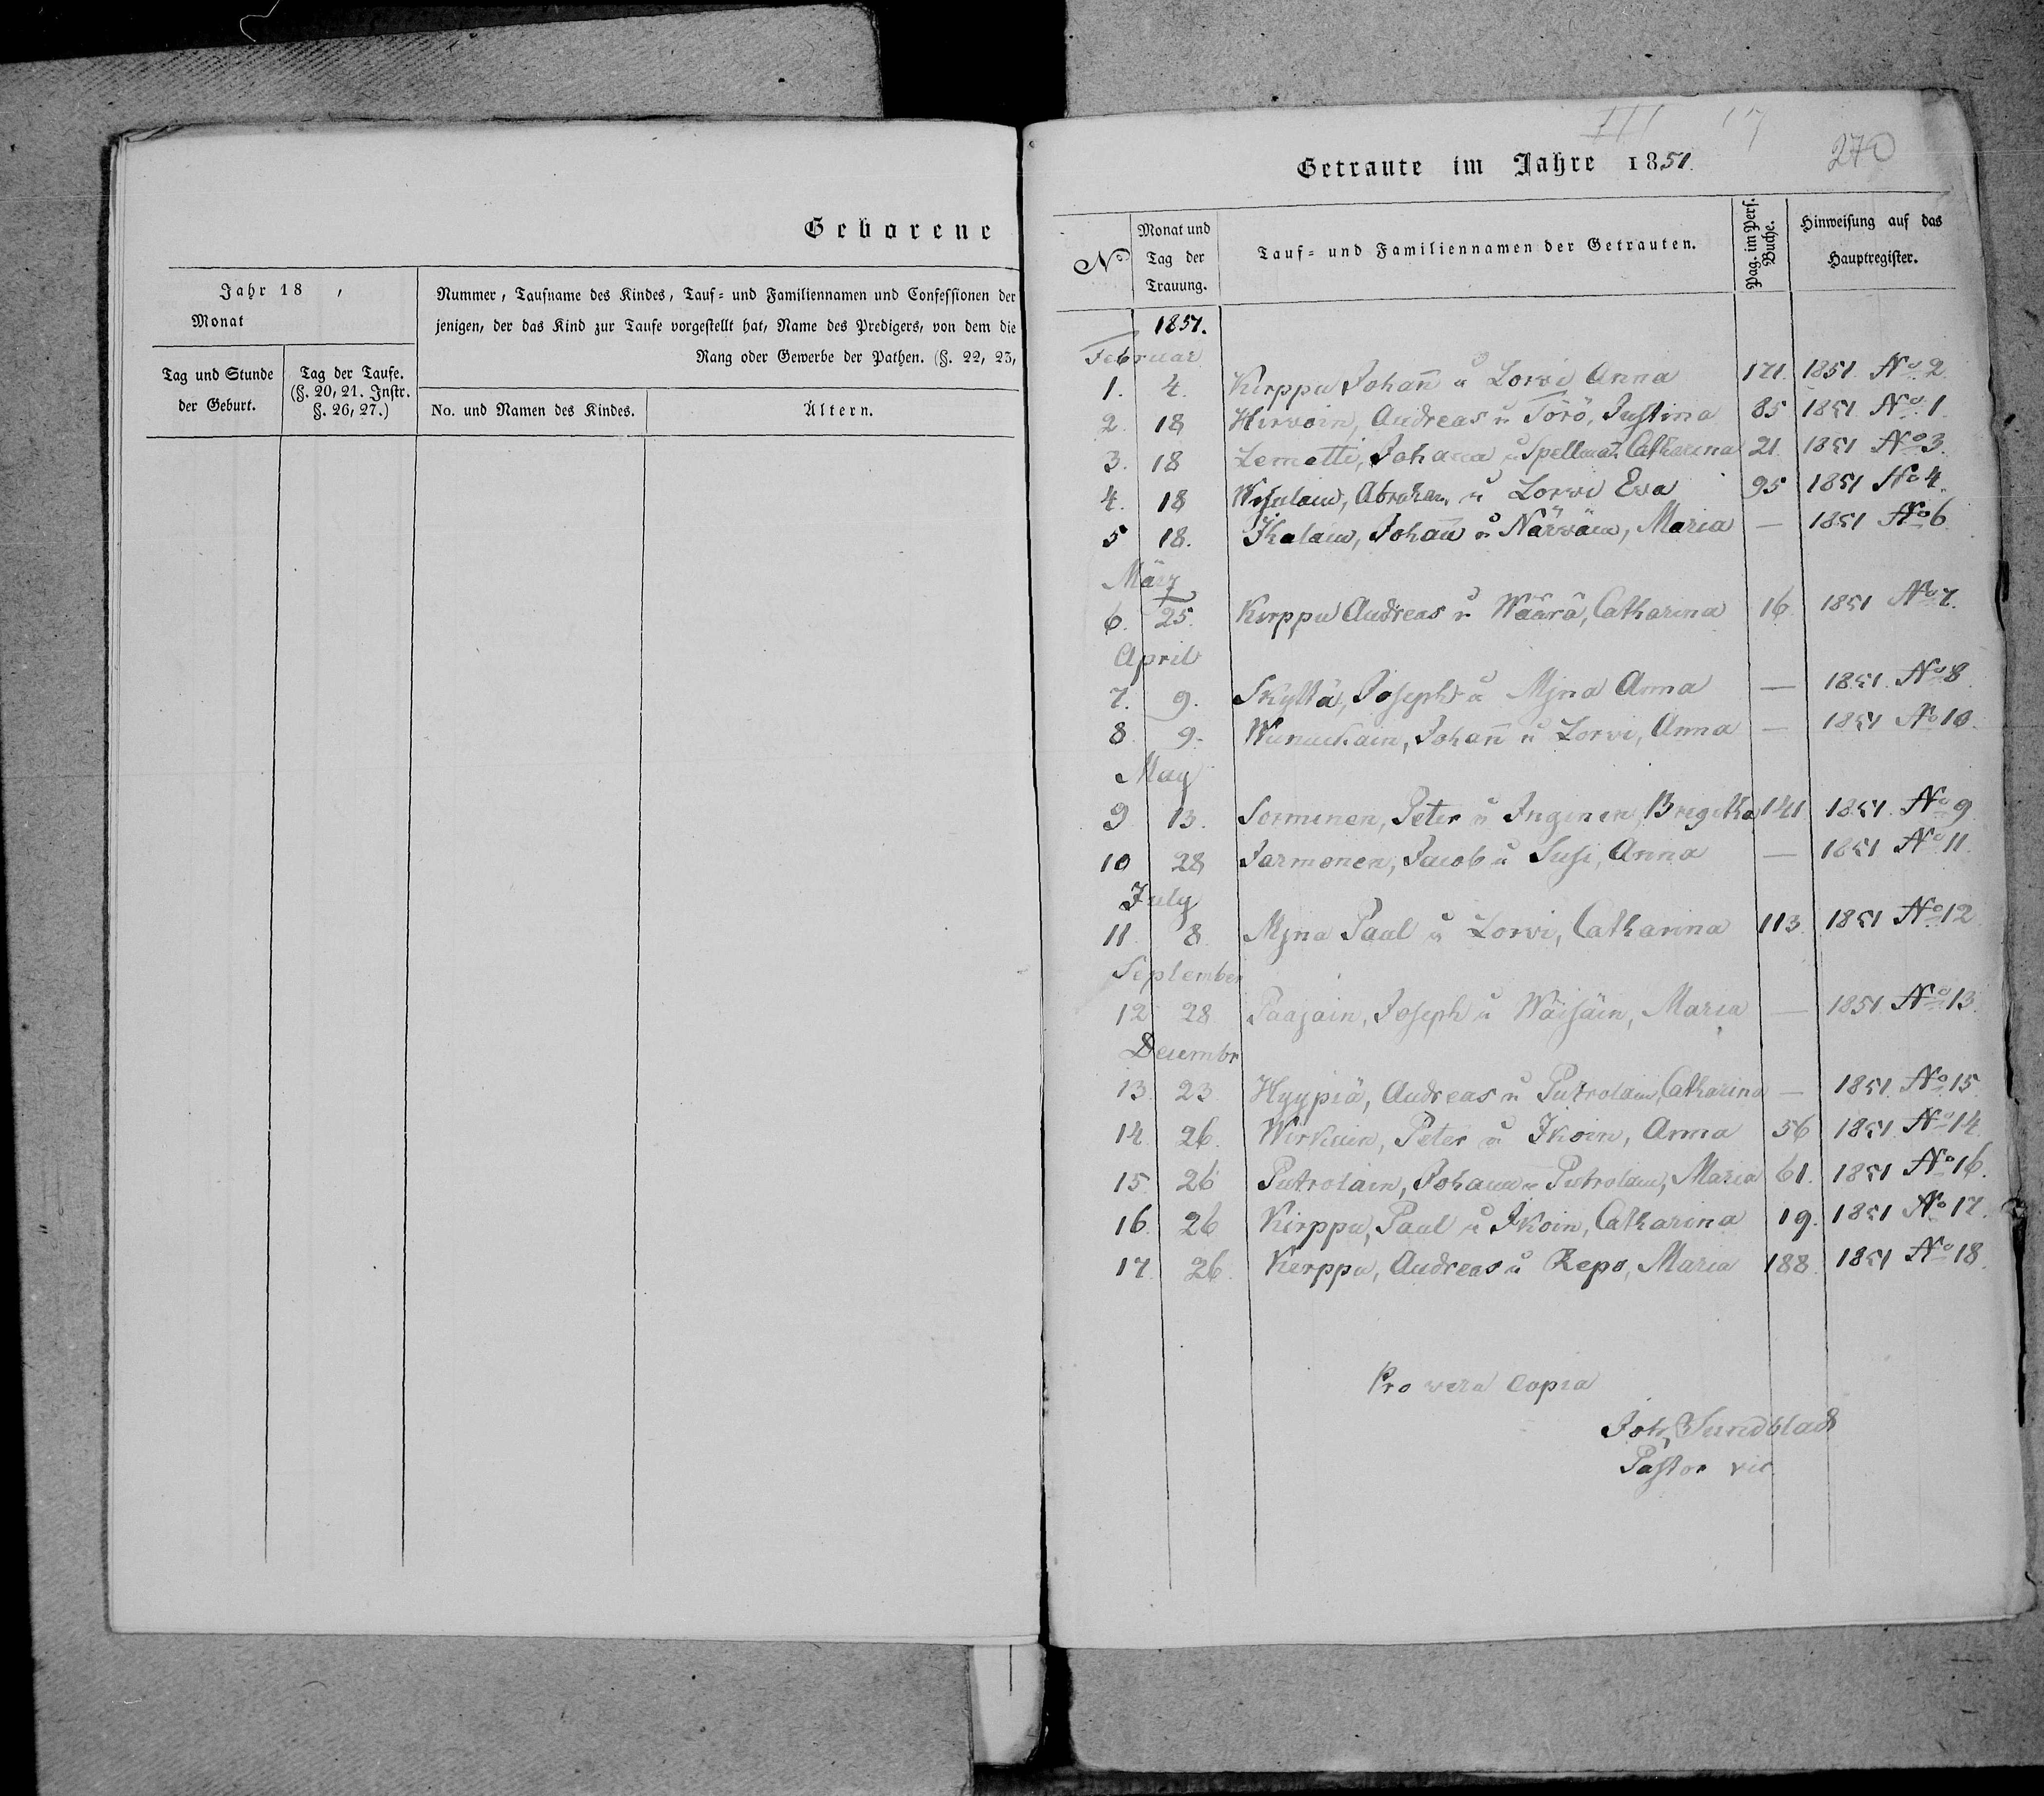 Geborene
Jahr 18 ,
Monat
Tag und Stunde
der Geburt.
Tag der Taufe.
(§. 20, 21. Instr.
§. 26, 27.)
Nummer, Taufname des Kindes, Tauf- und Familiennamen und Confessionen der
jenigen, der das Kind zur Taufe vorgestellt hat, Name des Predigers, von dem die
Rang oder Gewerbe der Pathen. (§. 22, 23,
No. und Namen des Kindes.
Ältern.
III 17
270
Getraute im Jahre 1851.
No
Monat und
Tag der
Trauung.
Tauf- und Familiennamen der Getrauten.
Pag. im Pers.
Buche.
Hinweisung auf das
Hauptregister.
1851.
Februar
1. 4. Kirppu Johan̄ u Lorvi Anna 171. 1851. No 2
2. 18 Hirvoin, Andreas u Törö, Justina 85 1851. No 1.
3. 18 Lemetti, Johann u Catharina 21. 1851 No 3.
4. 18 Abraham u Lorvi Eva 95 1851 No 4.
5 18. Ikalain, Johan̄ u Närväin, Maria — 1851 No 6.
März
6. 25. Kirppu Andreas u Wäärä, Catharina 16. 1851 No 7.
April
7. 9. Skyttä, Joseph u Mjna Anna — 1851. No 8
8 9. Johan̄ u Lorvi, Anna — 1851 No 10.
May
9 13. Sorminen, Peter u Inginen, Brigitha 141 1851. No 9
10 28 Jarmonen, Jacob u Susi, Anna — 1851 No 11.
July
11. 8. Mjna Paul u Lorvi, Catharina 113. 1851 No 12
September
12 28 Paajain, Joseph u Wäisäin, Maria — 1851 No 13.
Decembr
13. 23 Hyypiä, Andreas u Putrolain, Catharina — 1851. No 15.
14. 26. Wirkain, Peter u Ikoin, Anna 56 1851. No 14.
15. 26 Putrolain, Johann u Putrolain, Maria 61. 1851 No 16.
16. 26 Kirppu, Paul u Ikoin, Catharina 19. 1851 No 17.
17. 26. Kirppu, Andreas u Repo, Maria 188. 1851 No 18.
Pro vera Copia
Joh. Sundblad
Pastor vic.